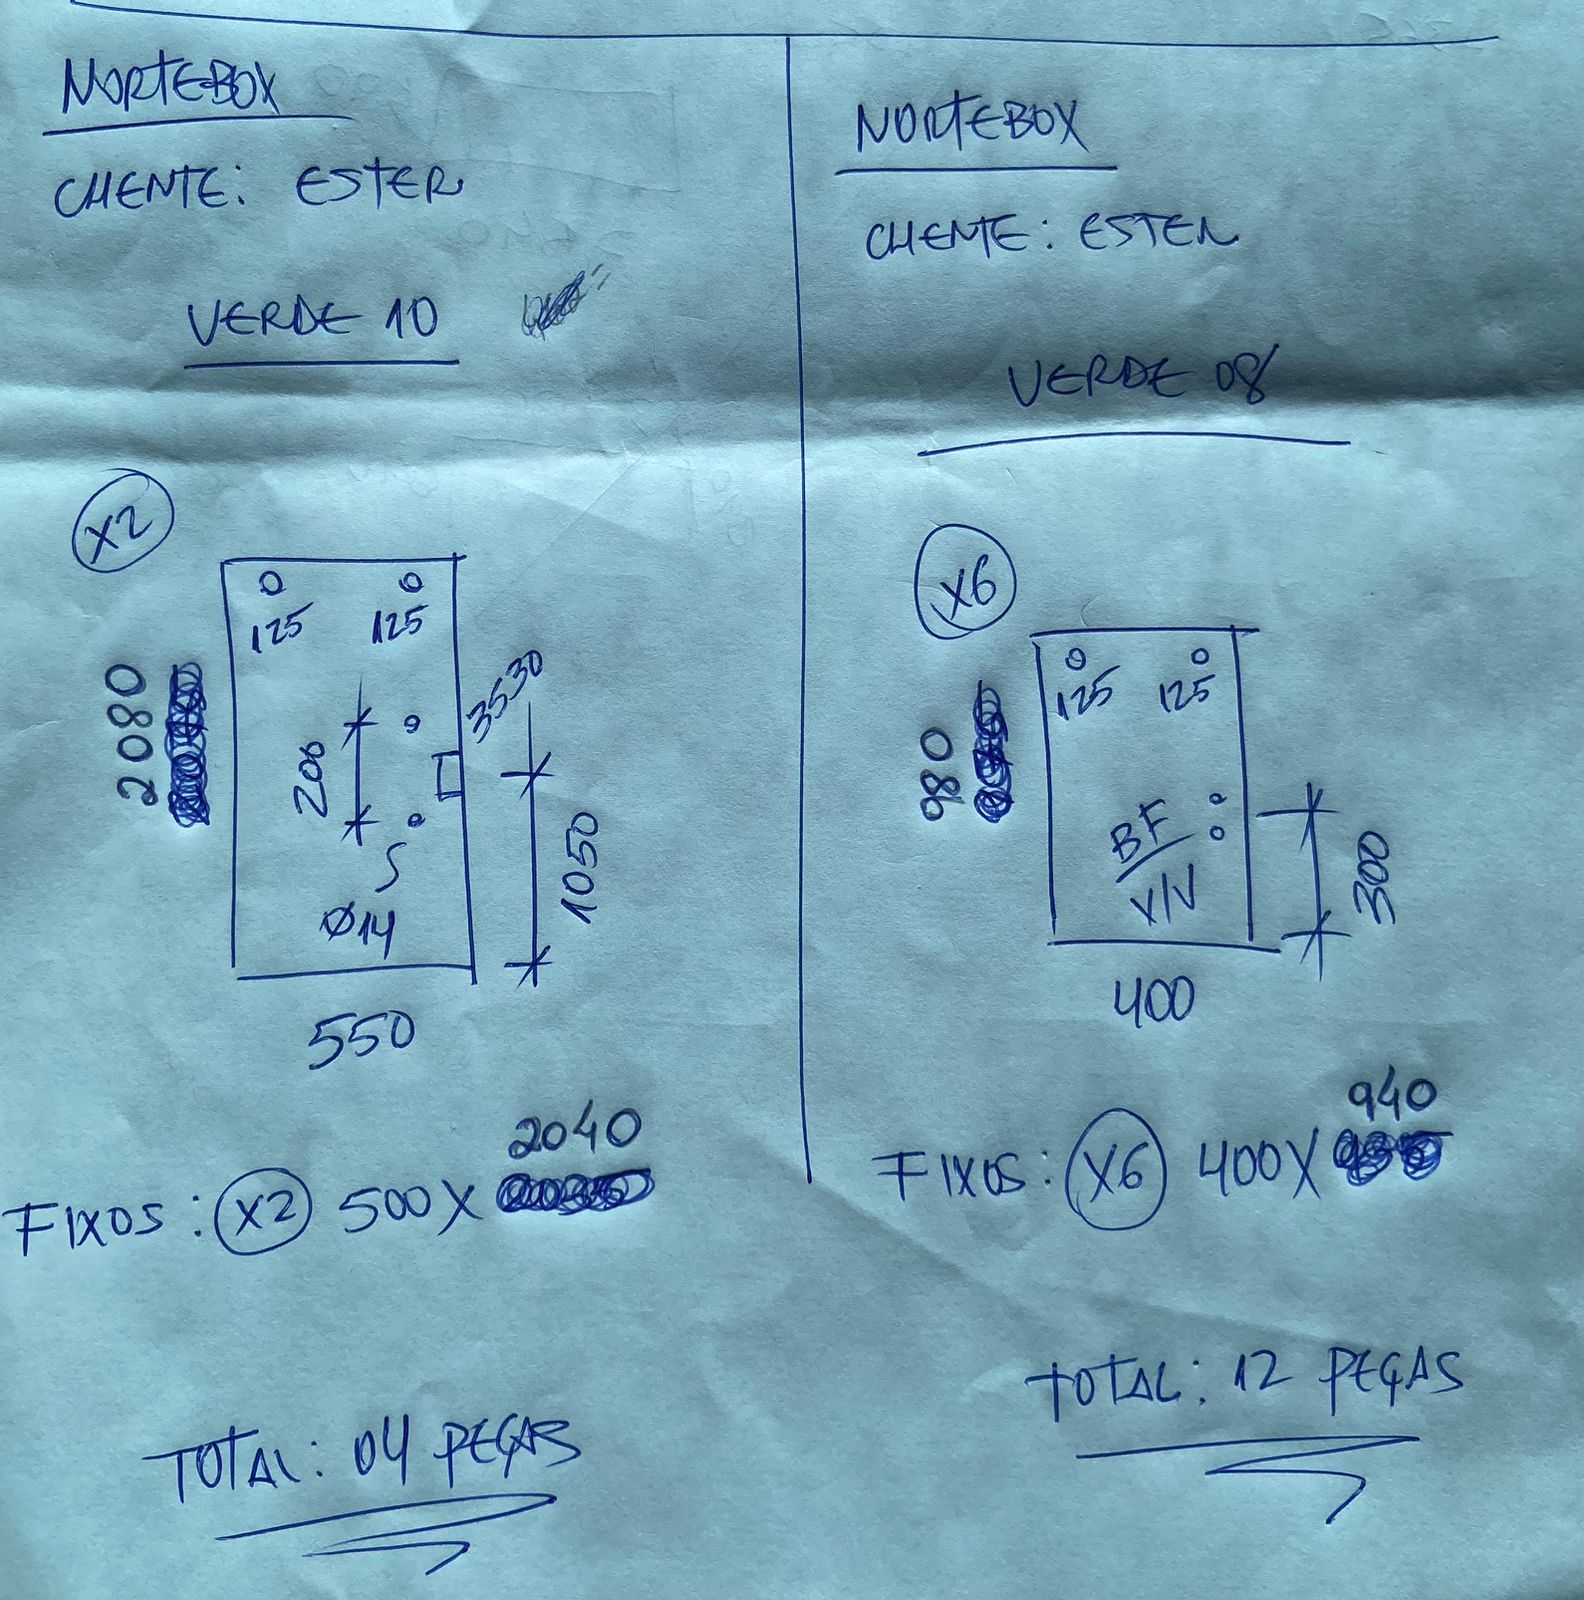 NORTEBOX
CLIENTE: ESTER
VERDE 10
X2
125 125
2080
3530
200
1050
Ø14
550
2040
FIXOS: X2 500X
TOTAL: 04 PEÇAS
NORTEBOX
CLIENTE: ESTER
VERDE 08
X6
125 125
980
BF
V/V
300
400
940
FIXOS: X6 400X
TOTAL: 12 PEÇAS